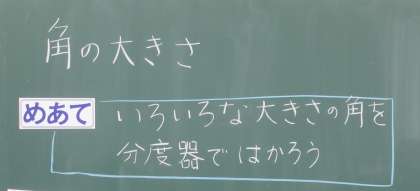 角の大きさ
めあて いろいろな大きさの角を
分度器ではかろう